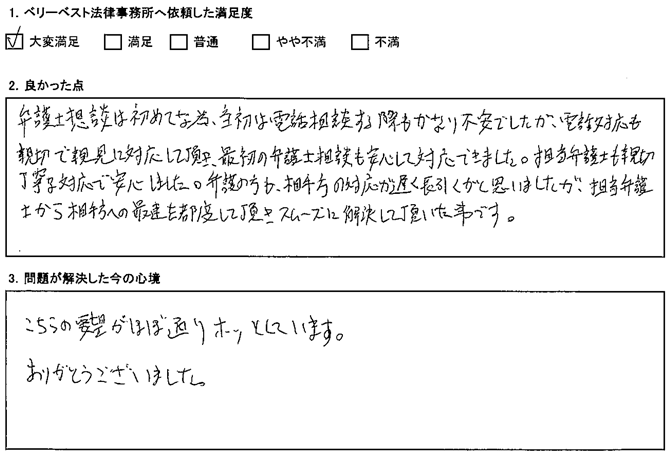 1. ベリーベスト法律事務所へ依頼した満足度
大変満足 満足 普通 やや不満 不満
2. 良かった点
弁護士想談は初めてな為、当初は電話相談する際もかなり不安でしたが、電話対応も
親切で親見に対応して頂き、最初の弁護士相談も安心して対応できました。担当弁護士も親切
丁寧な対応で安心しました。弁護の方も、相手方の対応が遅く長引くかと思いましたが、担当弁護
士から相手方への最速を都度して頂きスムーズに解決して頂いた事です。
3. 問題が解決した今の心境
こちらの要望がほぼ通りホッとしています。
ありがとうございました。